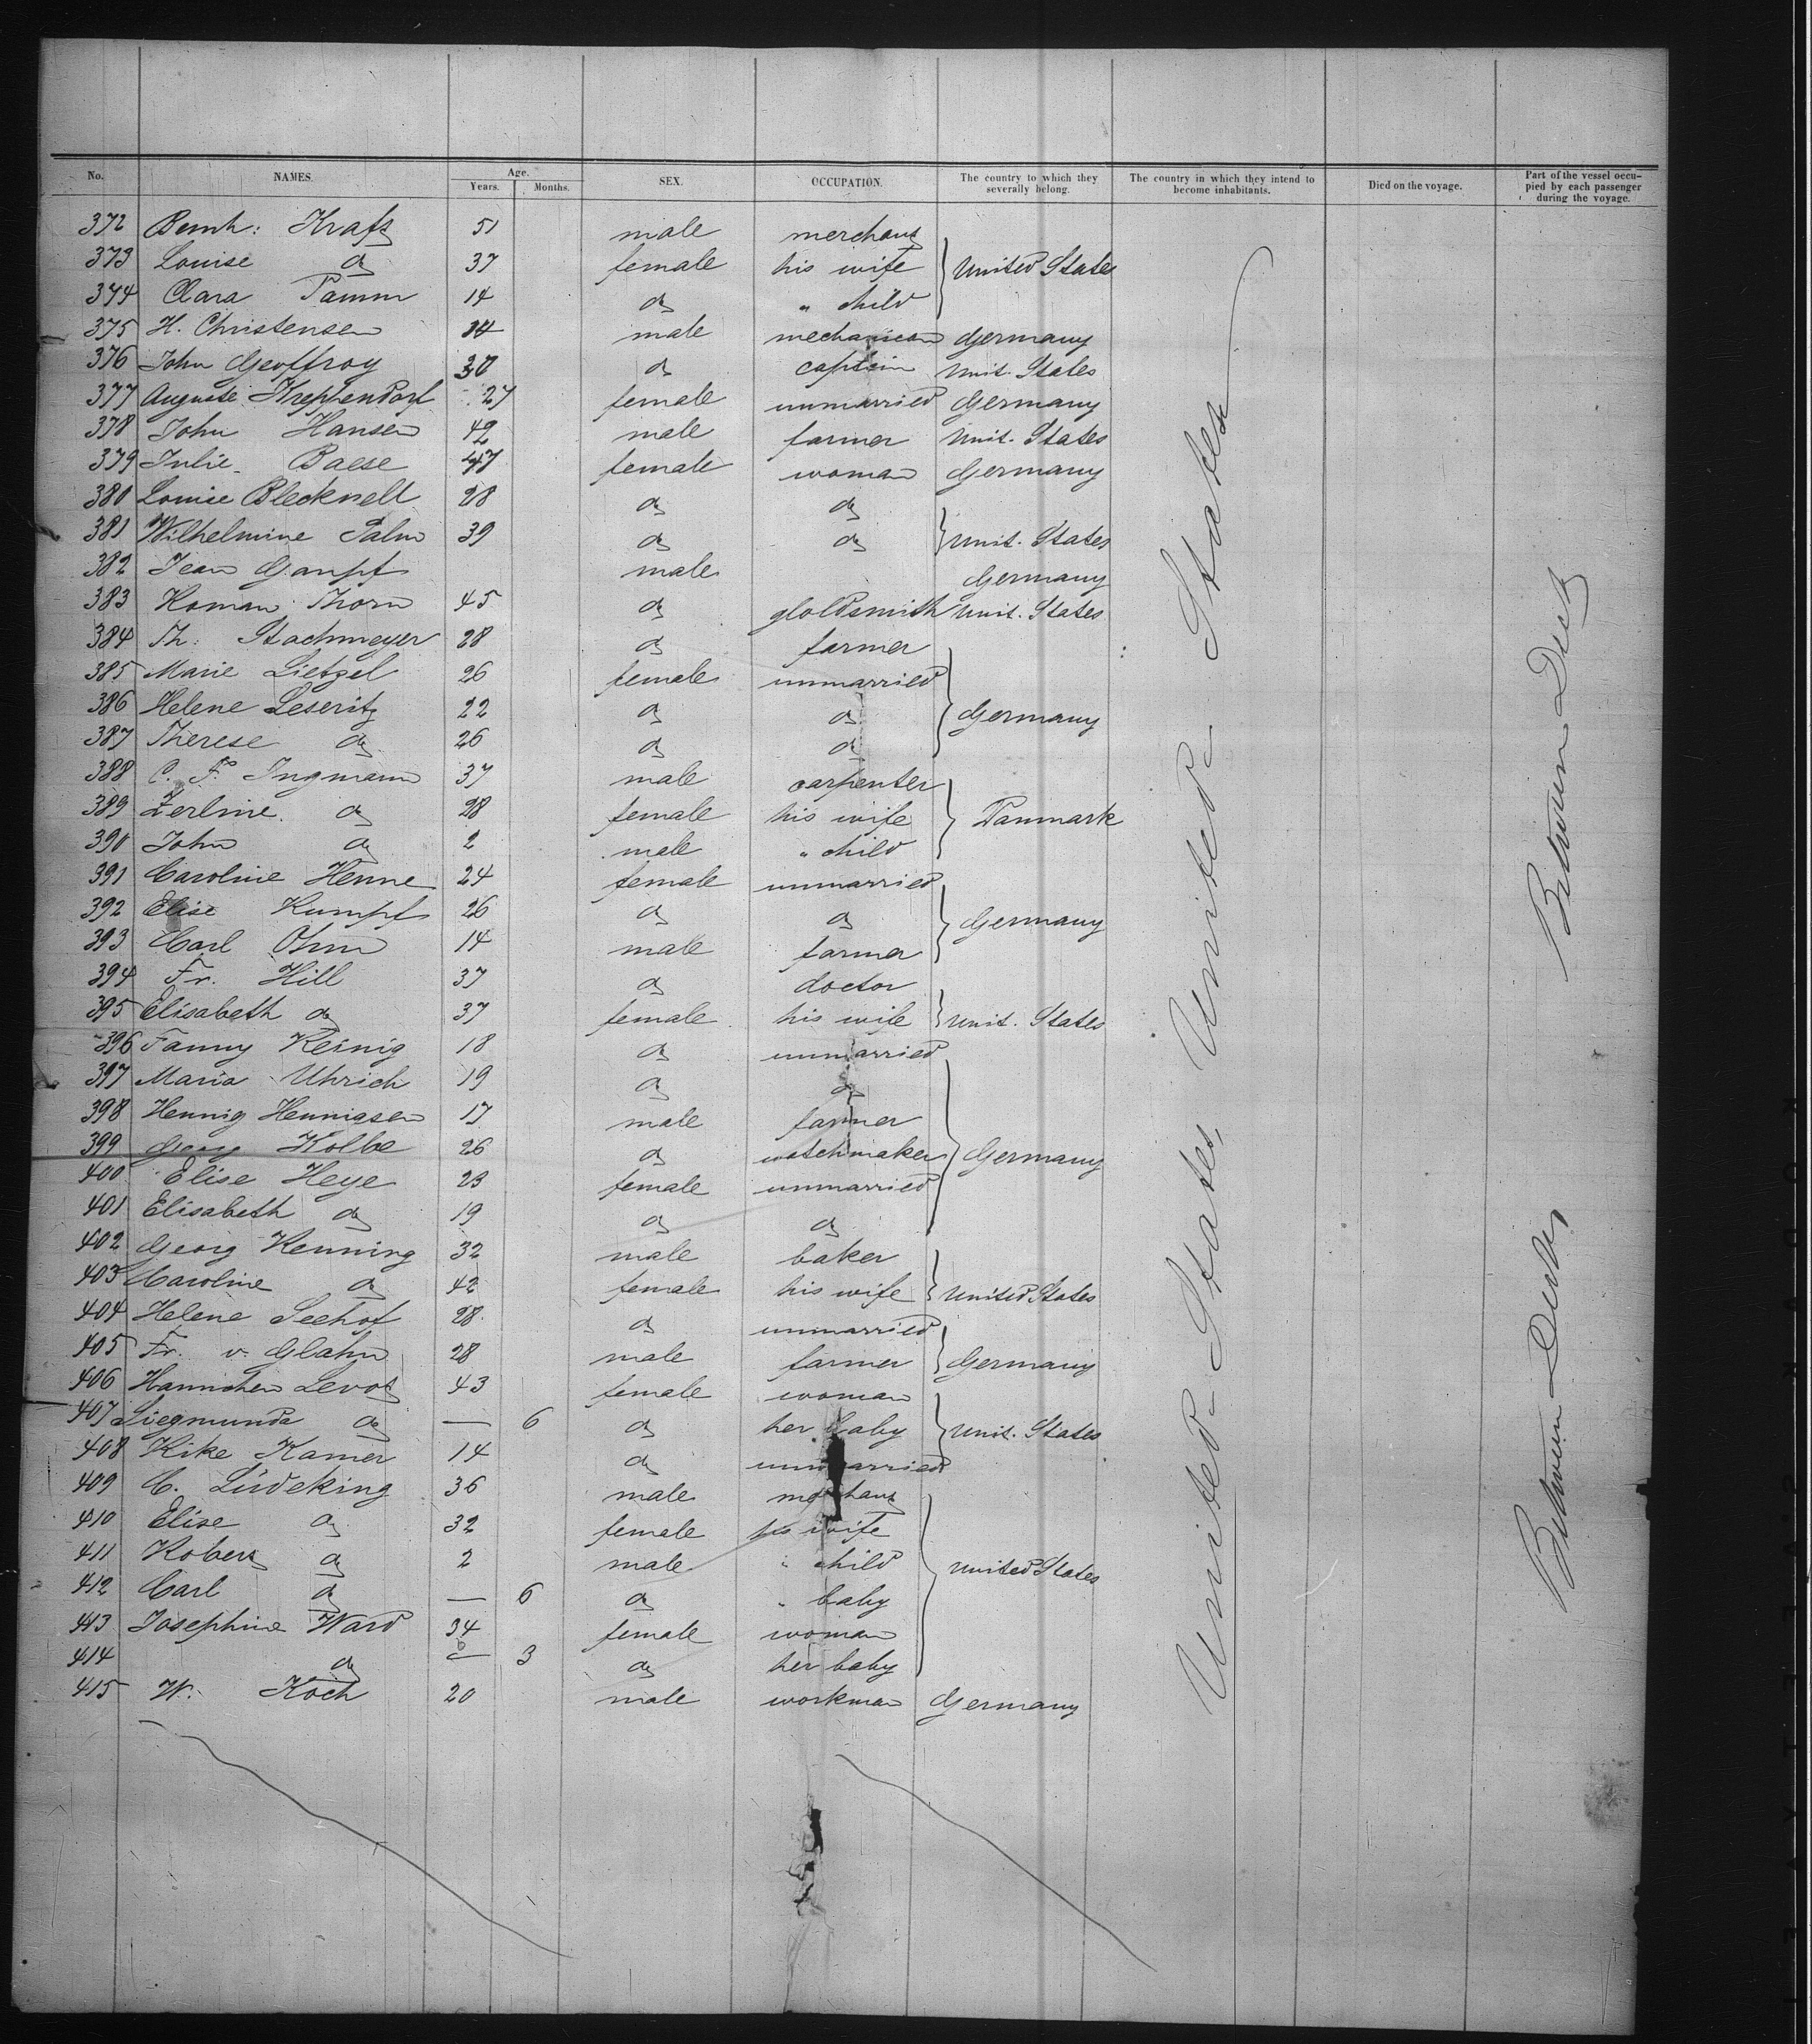 No. NAMES. Age. Years. Months. SEX. OCCUPATION. The country to which they severally belong. The country in which they intend to become inhabitants. Died on the voyage. Part of the vessel occupied by each passenger during the voyage.
372 Bernh: Kraft 51 male merchant
373 Louise do 37 female his wife United States
374 Clara Tamm 14 do " child
375 H. Christensen male mechanican Germany
376 John Geoffroy 30 do captain Unit. States
377 Auguste Krephendorf 27 female unmarried Germany
378 John Hansen 42 male farmer Unit. States
379 Julie Baese 47 female woman Germany
380 Louise Blecknell 28 do do
381 Wilhelmine Palm 39 do do Unit. States
382 Jean Gampf male Germany
383 Roman Thorn 45 do gloldsmith Unit. States
384 Th: Stachmeyer 28 do farmer
385 Marie Lietzel 26 female unmarried
386 Helene Leseritz 22 do do Germany
387 Therese do 26 do do
388 C. F. Ingmann 37 male carpenter
389 Zerline do 28 female his wife Danmark
390 John do 2 male " child
391 Caroline Henne 24 female unmarried
392 Elise Kumpf 26 do do Germany
393 Carl Ohm 14 male farmer
394 Fr. Hill 37 do doctor
395 Elisabeth do 37 female his wife Unit. States
396 Fanny Reinig 18 do unmarried
397 Maria Uhrich 19 do do
398 Hennig Hennigsen 17 male farmer
399 Georg Kolbe 26 do watchmaker Germany
400 Elise Heye 23 female unmarried
401 Elisabeth do 19 do do
402 Georg Henning 32 male baker
403 Caroline do 42 female his wife United States
404 Helene Seehof 28 do unmarried
405 Fr. v. Glahn 28 male farmer Germany
406 Hannchen Levot 43 female woman
407 Siegmunda do — 6 do her baby Unit. States
408 Rike Kamer 14 do unmarried
409 C. Lüdeking 36 male merchant
410 Elise do 32 female his wife
411 Robert do 2 male " child United States
412 Carl do — 6 do " baby
413 Josephine Ward 34 female woman
414 do — 3 do her baby
415 W. Koch 20 male workman Germany
United States, United States
Between Deck, Between Deck